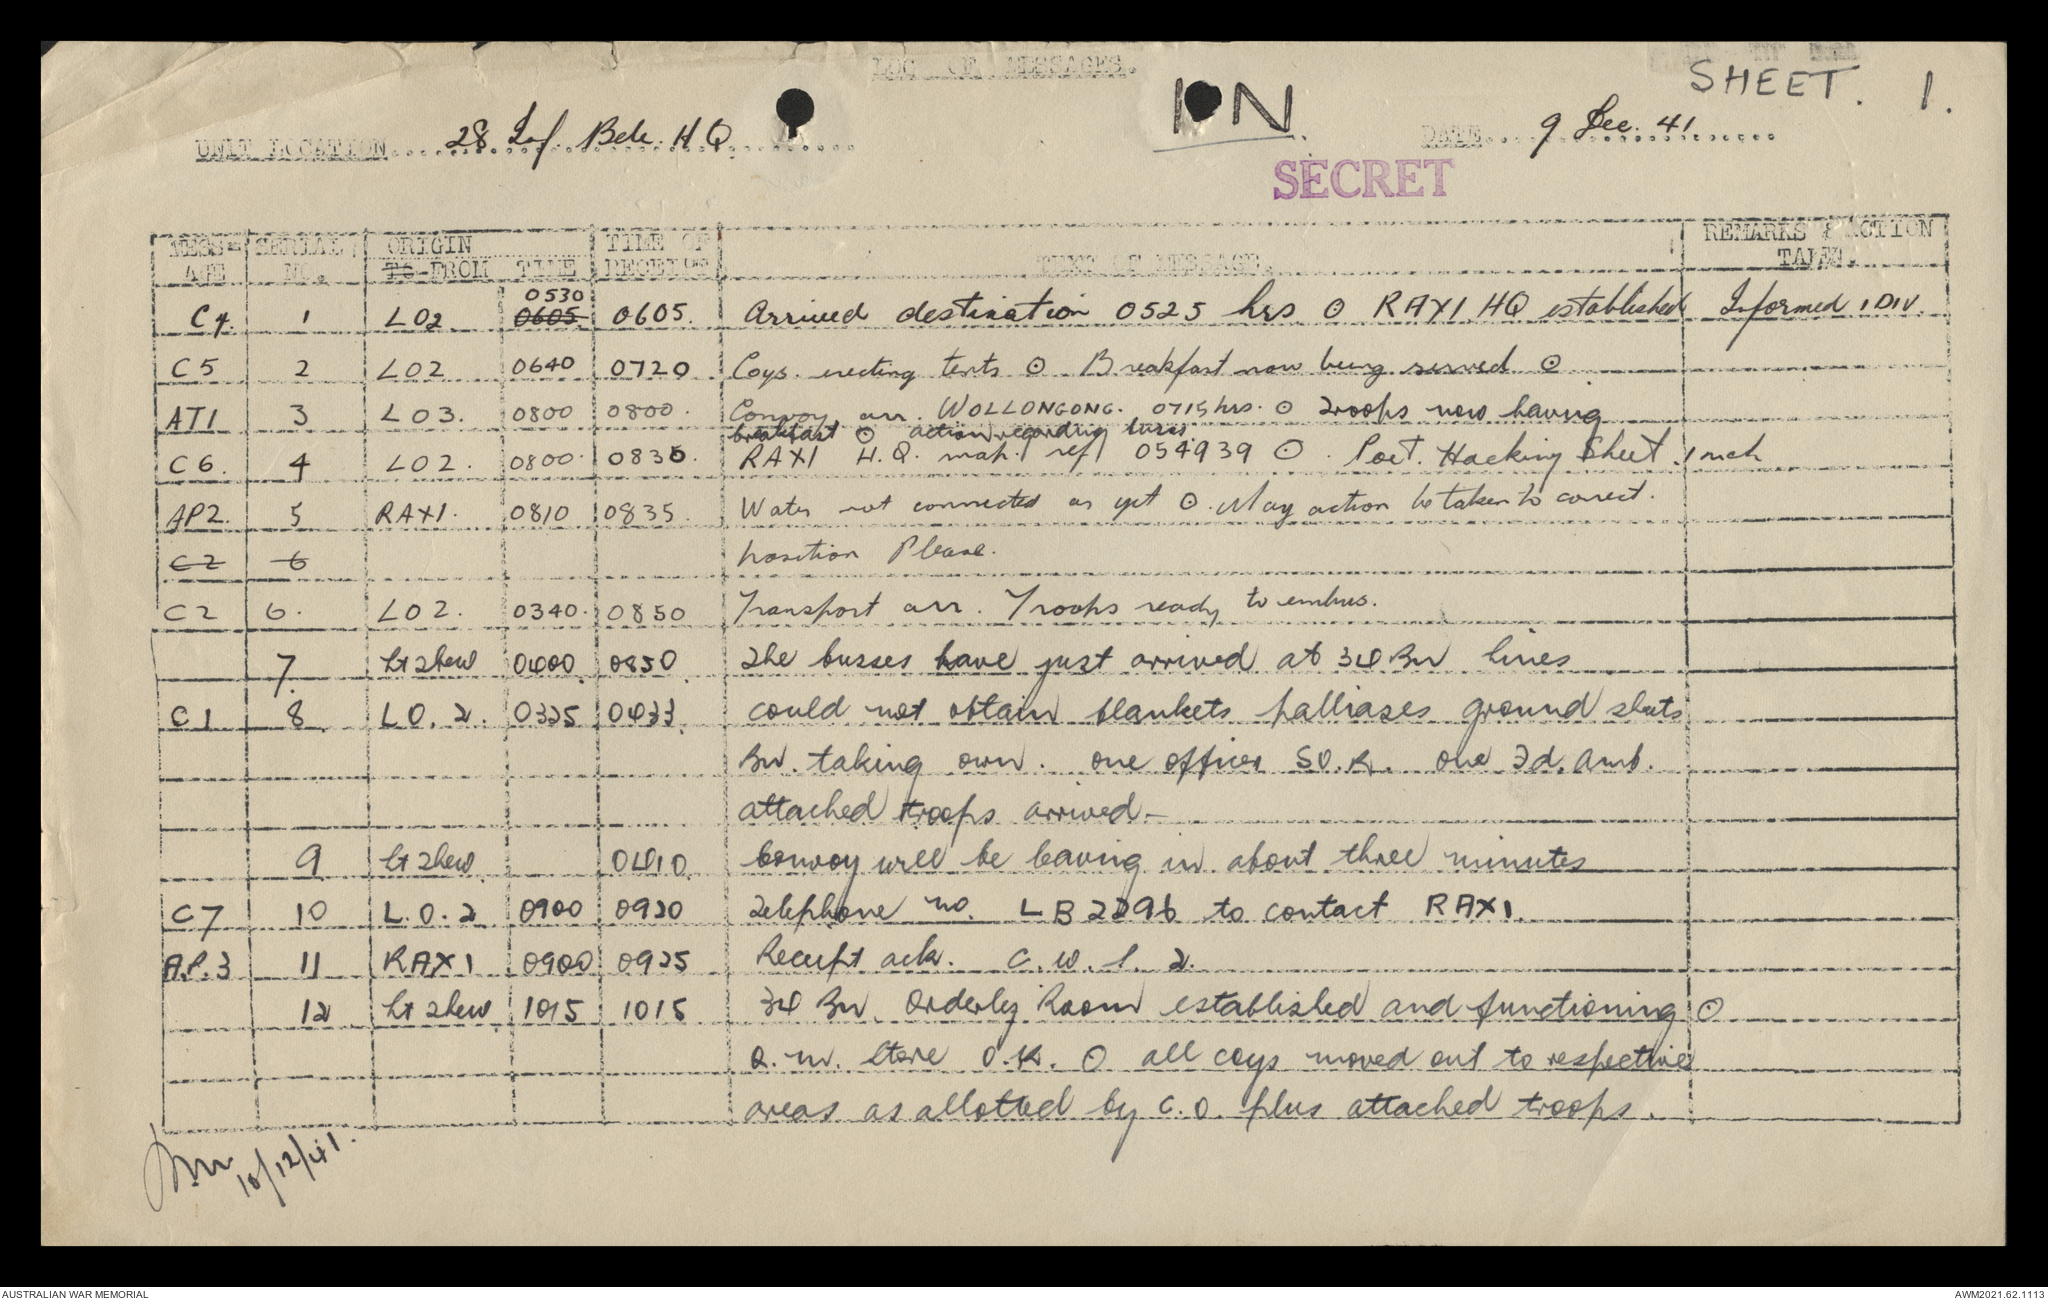 LOG OF MESSAGES.
SHEET. 1.
UNIT LOCATION 28 Inf. Bde. H.Q.
IN.
DATE 9 Dec. 41
SECRET
MESS-AGE SERIAL NO. ORIGIN TO FROM TIME TIME OF RECEIPT TEXT OF MESSAGE. REMARKS & ACTION TAKEN.
0530
C4 1 LO2 0605 0605. Arrived destination 0525 hrs ⊙ RAX1 HQ established Informed 1 DIV.
C5 2 LO2 0640 0720 Coys. erecting tents ⊙ Breakfast now being served ⊙
AT1 3 LO3. 0800 0800. Convoy arr. WOLLONGONG. 0715 hrs. ⊙ Troops now having
breakfast ⊙ action regarding buses.
C6. 4 LO2. 0800. 0835. RAX1 H.Q. map. ref 054939 ⊙. Port Hacking Sheet. 1 inch
AP2. 5 RAX1. 0810 0835. Water not connected as yet ⊙. May action be taken to correct.
C2 6 position Please.
C2 6. LO2. 0340. 0850 Transport arr. Troops ready to embus.
7. Lt 0400 0850 The busses have just arrived at 34 Bn lines
C1 8 L.O.2. 0325 0433. could not obtain blankets palliases ground sheets
Bn. taking own. one officer 50.R. one Fd. Amb.
attached troops arrived -
9 Lt 0410. Convoy will be leaving in about three minutes
C7 10 L.O.2 0900 0920 Telephone no. LB2296 to contact RAX1.
A.P.3 11 RAX1 0900 0925 Receipt ack. C.W.1.2.
12 Lt 1015 1015 34 Bn. Orderly Room established and functioning ⊙
Q.M. Store O.K. ⊙ all coys moved out to respective
areas as allotted by C.O. plus attached troops.
10/12/41.
AUSTRALIAN WAR MEMORIAL
AWM2021.62.1113